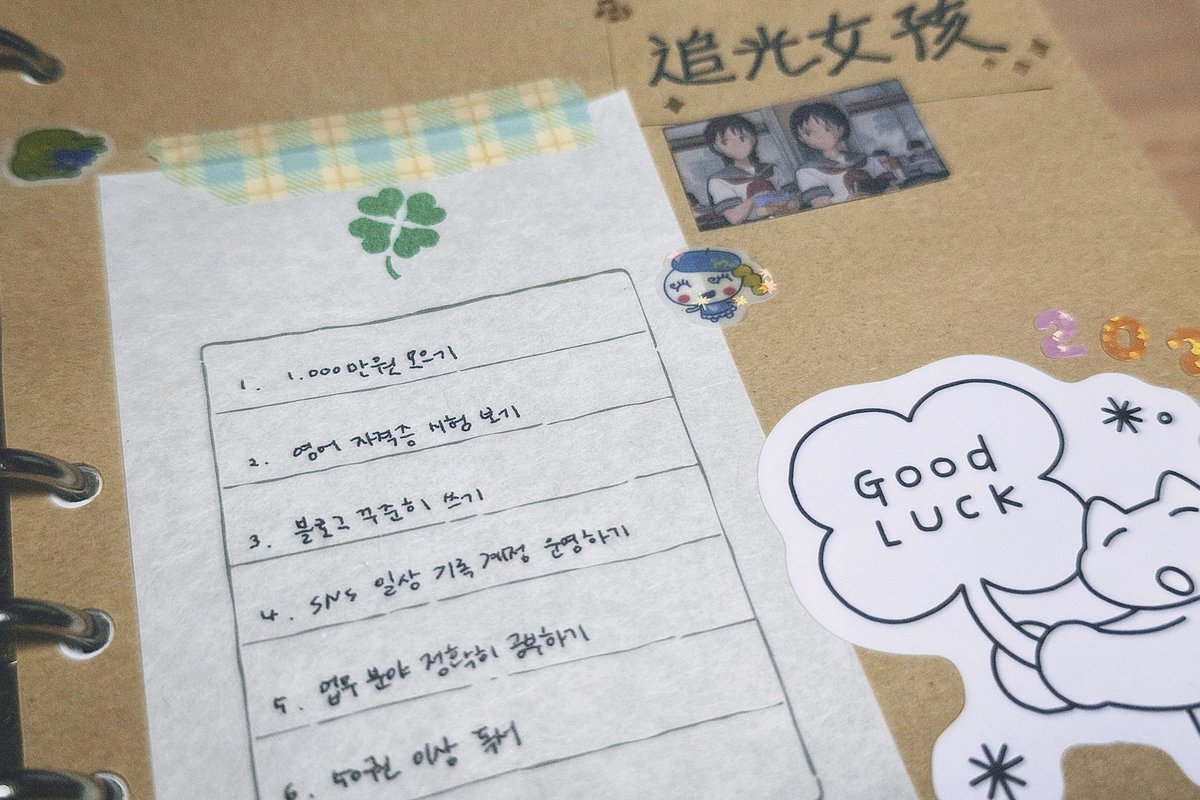 追光女孩
1. 1.000만원 모으기
2. 영어 자격증 시험 보기
3. 블로그 꾸준히 쓰기
4. SNS 일상 기록 계정 운영하기
5. 업무 분야 정확히 공부하기
6. 50권 이상 독서
202
Good
LUCK